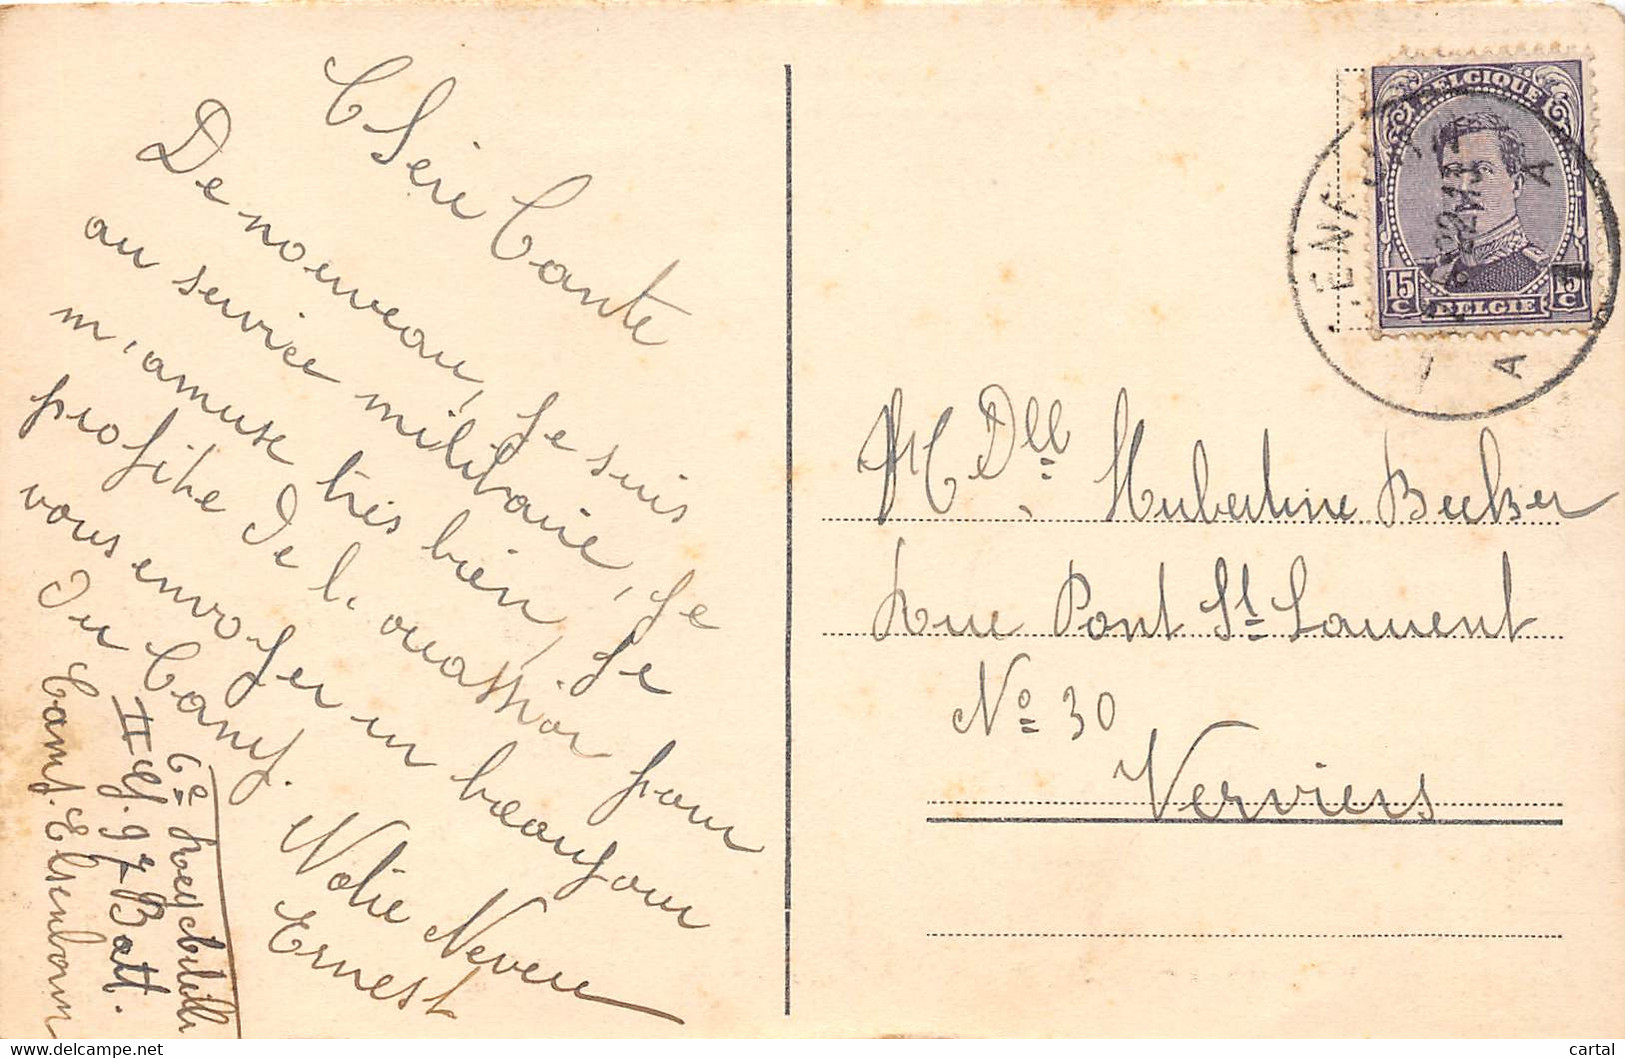 Chère Tante
De nouveau, je suis
au service militaire, je
m'amuse très bien, je
profite de l'ocassion pour
vous envoyer un beaujour
du Camp.
Votre Neveu
Ernest
6e
II 9 Batt.
Camp. Elsenborn
BELGIQUE
15 C
BELGIE
15 C
A A
MeDlle Hubertine Becker
Rue Pont St Laurent
No 30
Verviers
www.delcampe.net
cartal